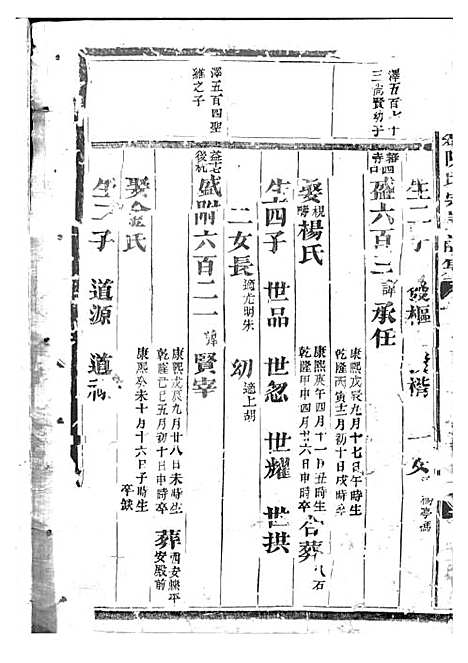 澤五百七十
三尚賢幼子
澤五百四聖
維之子
生二子 發樞 楷 一女
盛六百二 諱承任
康熙戊辰九月十七日午時生
乾隆丙寅十二月初十日戌時卒
娶楊氏
康熙庚午四月十一日丑時生
乾隆甲申四月廿六日申時卒
合葬
生四子 世品 世忽 世耀 世拱
二女長適尤明朱 幼適上胡
盛附六百二一諱賢宰
康熙戊辰九月廿八日未時生
乾隆己巳五月初三日申時卒
葬西安樂平
安殿前
娶金氏
康熙癸未十月十六日子時生
卒缺
生二子 道源 道